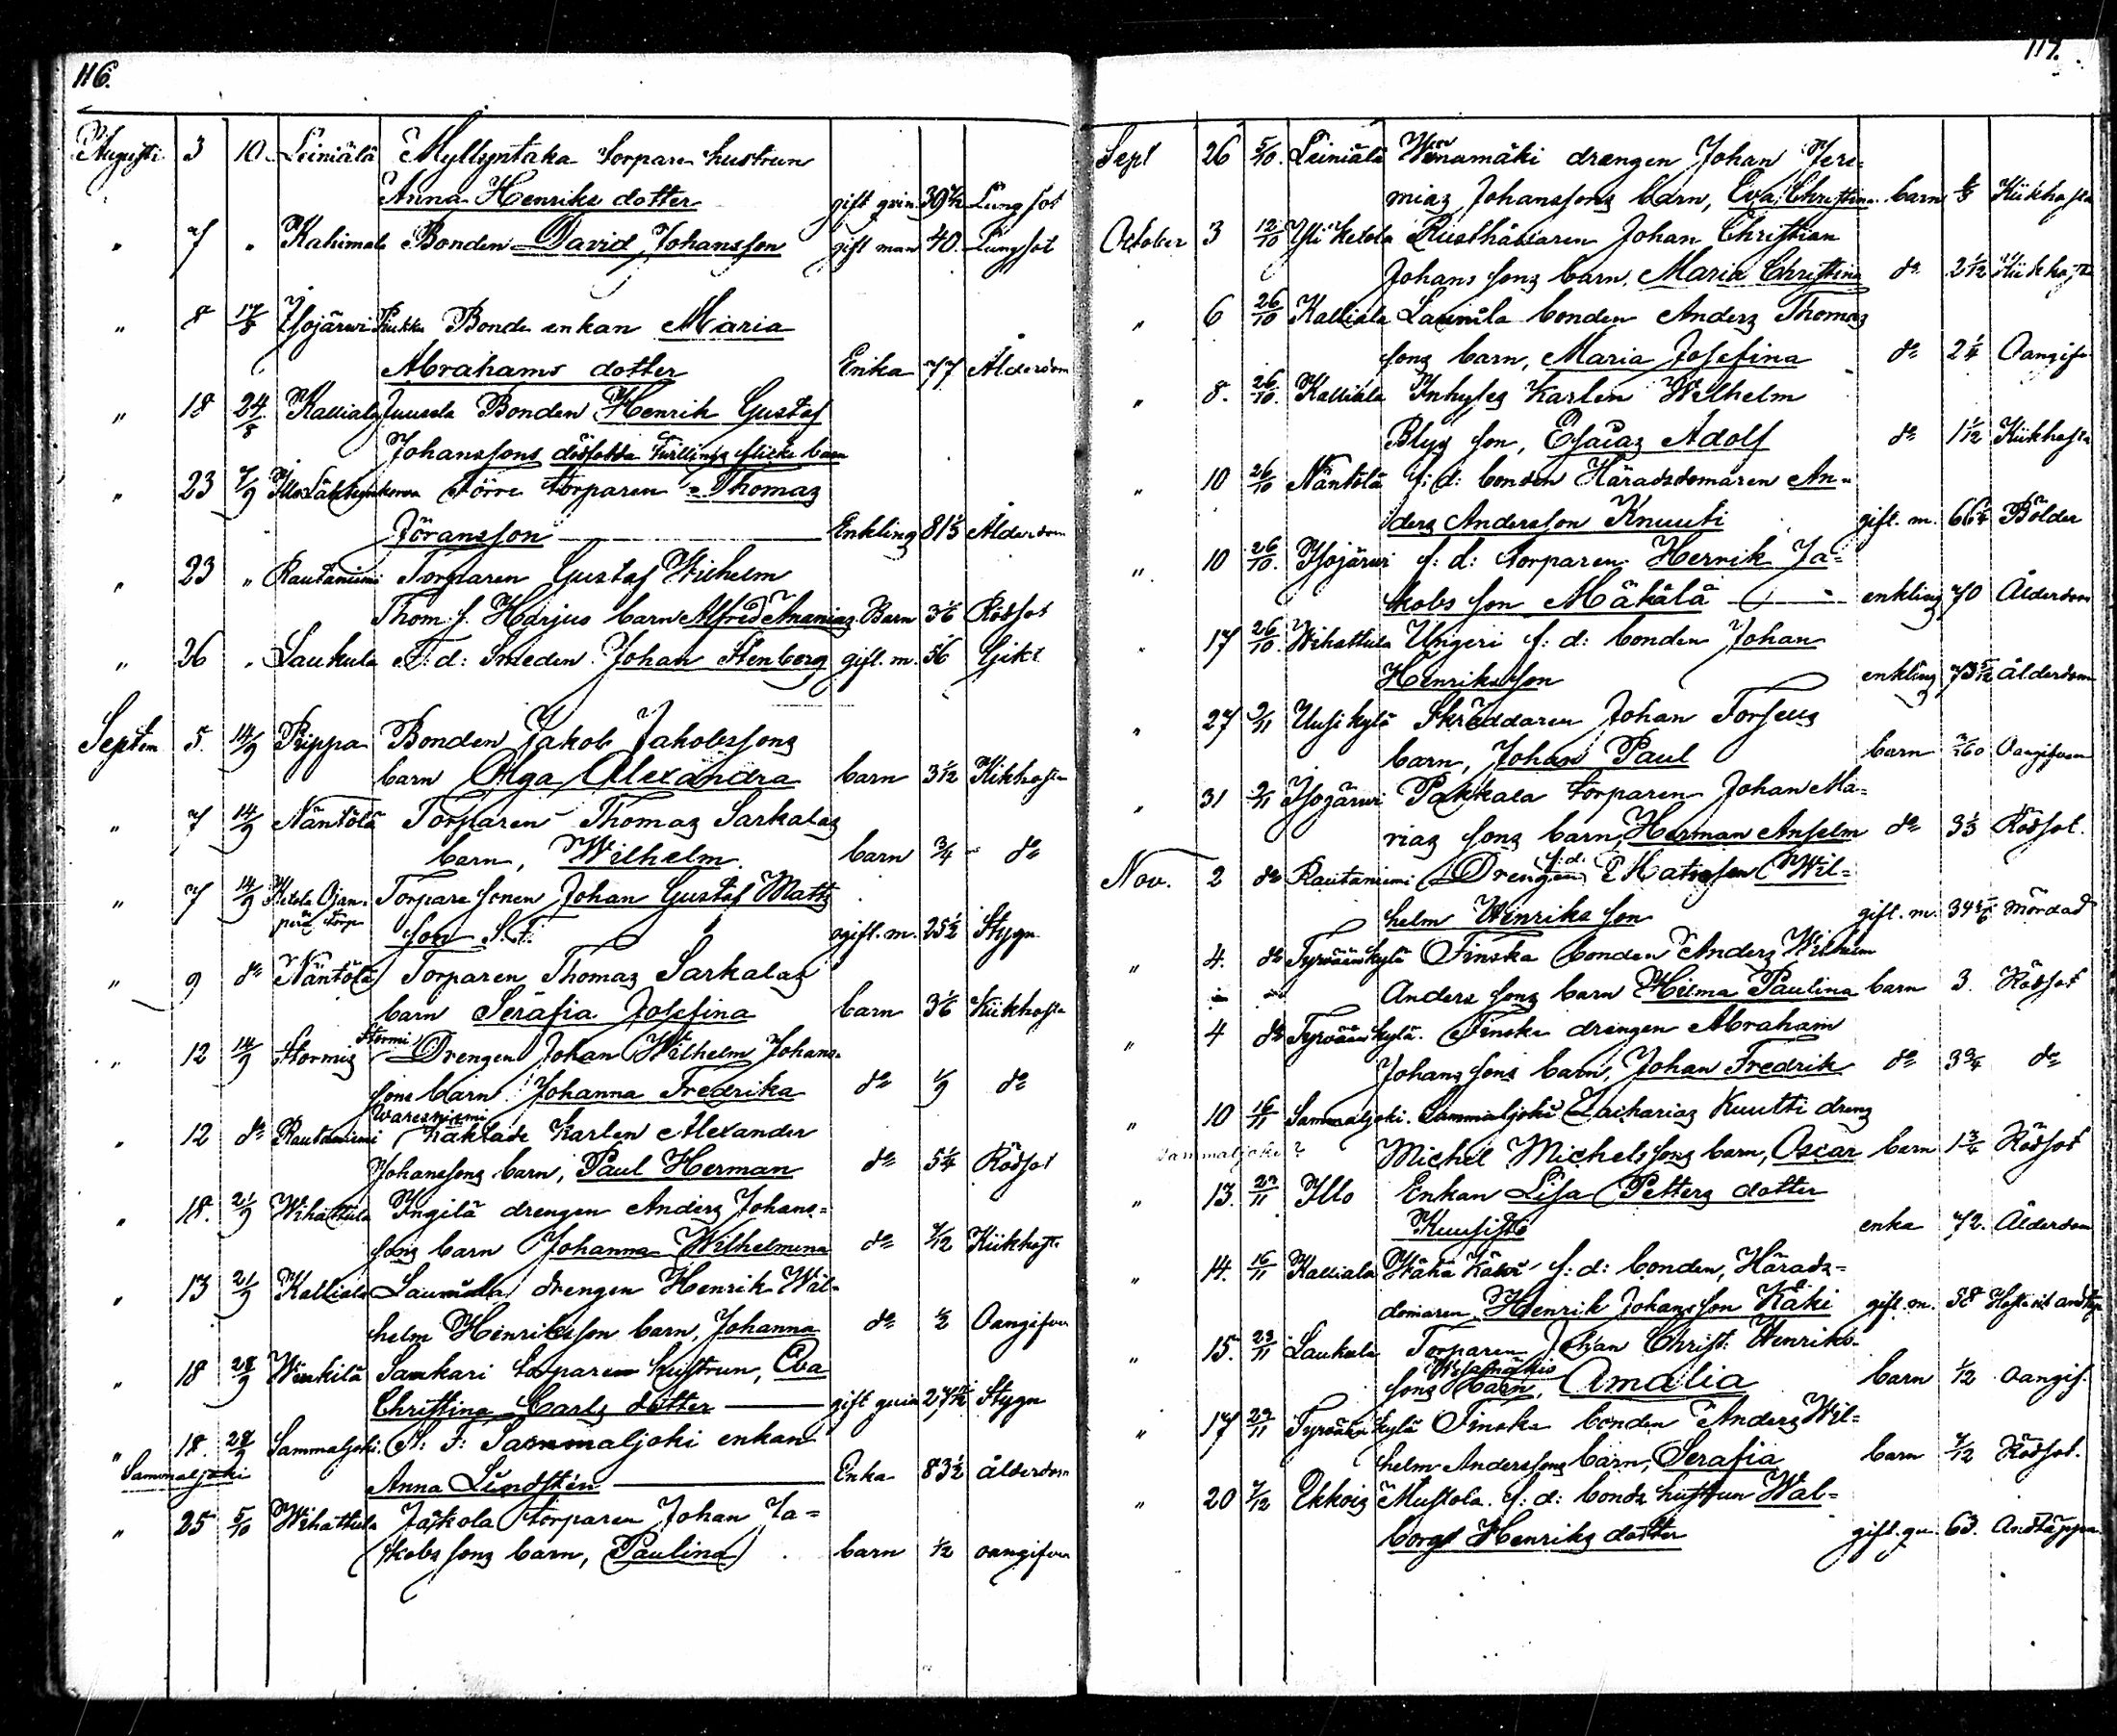 116.
Augusti 3 10. Leiniälä Myllyntaka torpare hustrun
Anna Henriks dotter gift qvin. Lungsot
" 7 " Kahimala Bonden David Johansson gift man 40. Lungsot
" 8 17/8 Isojärwi Pukka Bonde enkan Maria
Abrahams dotter Enka 77 Ålderdom
" 18 24/8 Kalliala Juusela Bonden Henrik Gustaf
Johanssons dödfödda tvillings flicke barn
" 23 7/9 Illo Förre torparen Thomas
Jöransson Enkling 81 1/3 Ålderdom
" 23 " Rautaniemi Torparen Gustaf Wilhelm
Thom. s. Harjus barn Alfred Ananias Barn 3 1/6 Rödsot
" 26 " Laukula F: d: Smeden Johan Stenberg gift. m. 56 Gikt
Septem 5. 14/9 Rippa Bonden Jakob Jakobssons
barn Olga Alexandra barn 3 1/12 Kikhosta
" 7 14/9 Näntölä Torparen Thomas Sarkalas
barn, Wilhelm. barn 3/4 do
" 7 14/9 Ketola Ojan- Torpare sonen Johan Gustaf Matts
perä torp son S. F. ogift. m. 25 1/2 Stygn
" 9 do Näntölä Torparen Thomas Sarkalas
barn Serafia Josefina barn 3 1/6 Kikhosta
" 12 14/9 Stormis Stormi Drengen Johan Wilhelm Johans-
sons barn Johanna Fredrika do 1/9 do
" 12 do Rautaniemi Waresniemi Karlen Alexander
Johanssons barn, Paul Herman do 5 1/4 Rödsot
" 18. 21/9 Wihattula Ingilä drengen Anders Johans-
sons barn Johanna Wilhelmina do 7/12 Kikhosta
" 13 21/9 Kalliala Laurila drengen Henrik Wil-
helm Henriksson barn, Johanna do 1/2 Oangifven
" 18 28/9 Sankari torparen hustrun, Eva
Christina Carls dotter gift qvin Stygn
" 18. 28/9 Sammaljoki. S: F: Sammaljoki enkan
Sammaljoki Anna Lindstén Enka 83 1/2 ålderdom
" 25 5/10 Wihattula Jaskola torparen Johan Ja-
kobs sons barn, Paulina barn 1/2 oangifven
117.
Sept 26 5/10. Leiniälä drengen Johan Jere-
mias Johanssons barn, Eva Christina barn Kikhosta
October 3 12/10 Yli Ketola Rusthållaren Johan Christian
Johans sons barn, Maria Christina do 2 1/12 Kikhosta
" 6 26/10 Kalliala Laurila bonden Anders Thomas
sons barn, Maria Josefina do 2 1/4 Oangifv.
" 8. 26/10. Kalliala Inhyses Karlen Wilhelm
Blys son, Esaias Adolf do 1 1/12 Kikhosta
" 10 26/10 Näntölä f: d: bonden Häradsdomaren An-
ders Andersson Knuuti gift. m. 66 1/4 Bölder
" 10 26/10. Isojärwi f: d: torparen Henrik Ja-
kobs son Mäkälä enkling 70 Ålderdom
" 17 26/10. Wihattula Ungeri f: d: bonden Johan
Henriksson enkling 73 5/12 ålderdom
" 27 9/11 Uusi kylä Skräddaren Johan Forseus
barn, Johan Paul barn Oangifven
" 31 9/11 Isojärwi Pakkala torparen Johan Ma-
rias sons barn, Herman Anselm do 3 1/3 Rödsot.
Nov. 2 do Rautaniemi f: d: Drengen Matsson Wil-
helm Henriks son gift. m. Mördad
" 4. do Tyrvään kylä Finska bonden Anders Wilhelm
Anders sons barn Hilma Paulina barn 3. Rödsot
" 4 do Tyrvään kylä. Finska drengen Abraham
Johans sons barn, Johan Fredrik do 3 3/4 do
" 10 16/11 Sammaljoki. Sammaljoki Zacharias Kuutti dreng
Sammaljoki? Michel Michelssons barn, Oscar barn 1 3/4 Rödsot
" 13. 23/11 Illo Enkan Lisa Petters dotter
Kuusisto enka 72. Ålderdom
" 14. 16/11 Kalliala Wähä f: d: bonden, Härads-
domaren, Henrik Johansson Käki gift. m. 58
" 15. 23/11 Laukula Torparen Johan Christ. Henriks-
sons barn, Amalia barn 1/2 oangif.
" 17 23/11 Tyrvään kylä Finska bonden Anders Wil-
helm Anderssons barn, Serafia barn 7/12 Rödsot.
" 20 7/12 Ekkois Mustola. f: d: bonds hustrun Wal-
borg Henriks dotter gift. qv. 63. Andtäppa